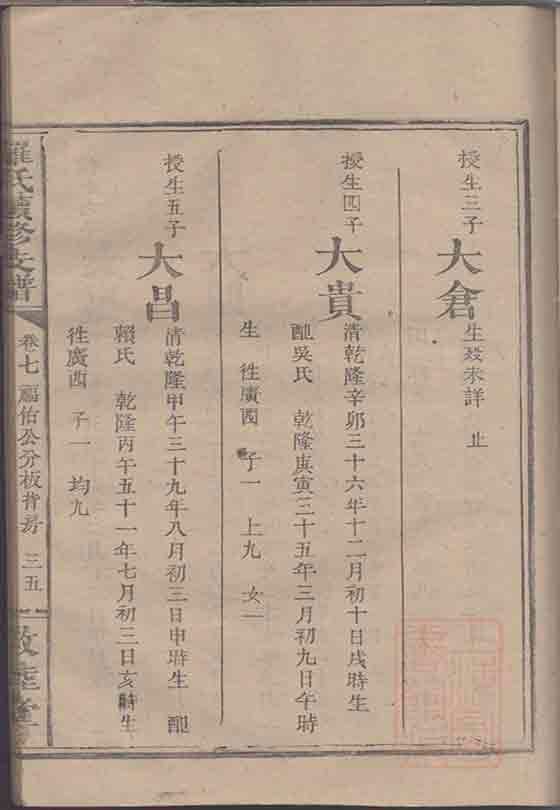 授生三子
大倉
生歿未詳 止
授生四子
大貴
清乾隆辛卯三十六年十二月初十日戌時生
配吳氏 乾隆庚寅三十五年三月初九日午時
生 徃廣西 子一 上九 女一
授生五子
大昌
清乾隆甲午三十九年八月初三日申時生 配
賴氏 乾隆丙午五十一年七月初三日亥時生
徃廣西 子一 均九
羅氏續修支譜
卷七 福佑公分板背房 三五
敦睦堂